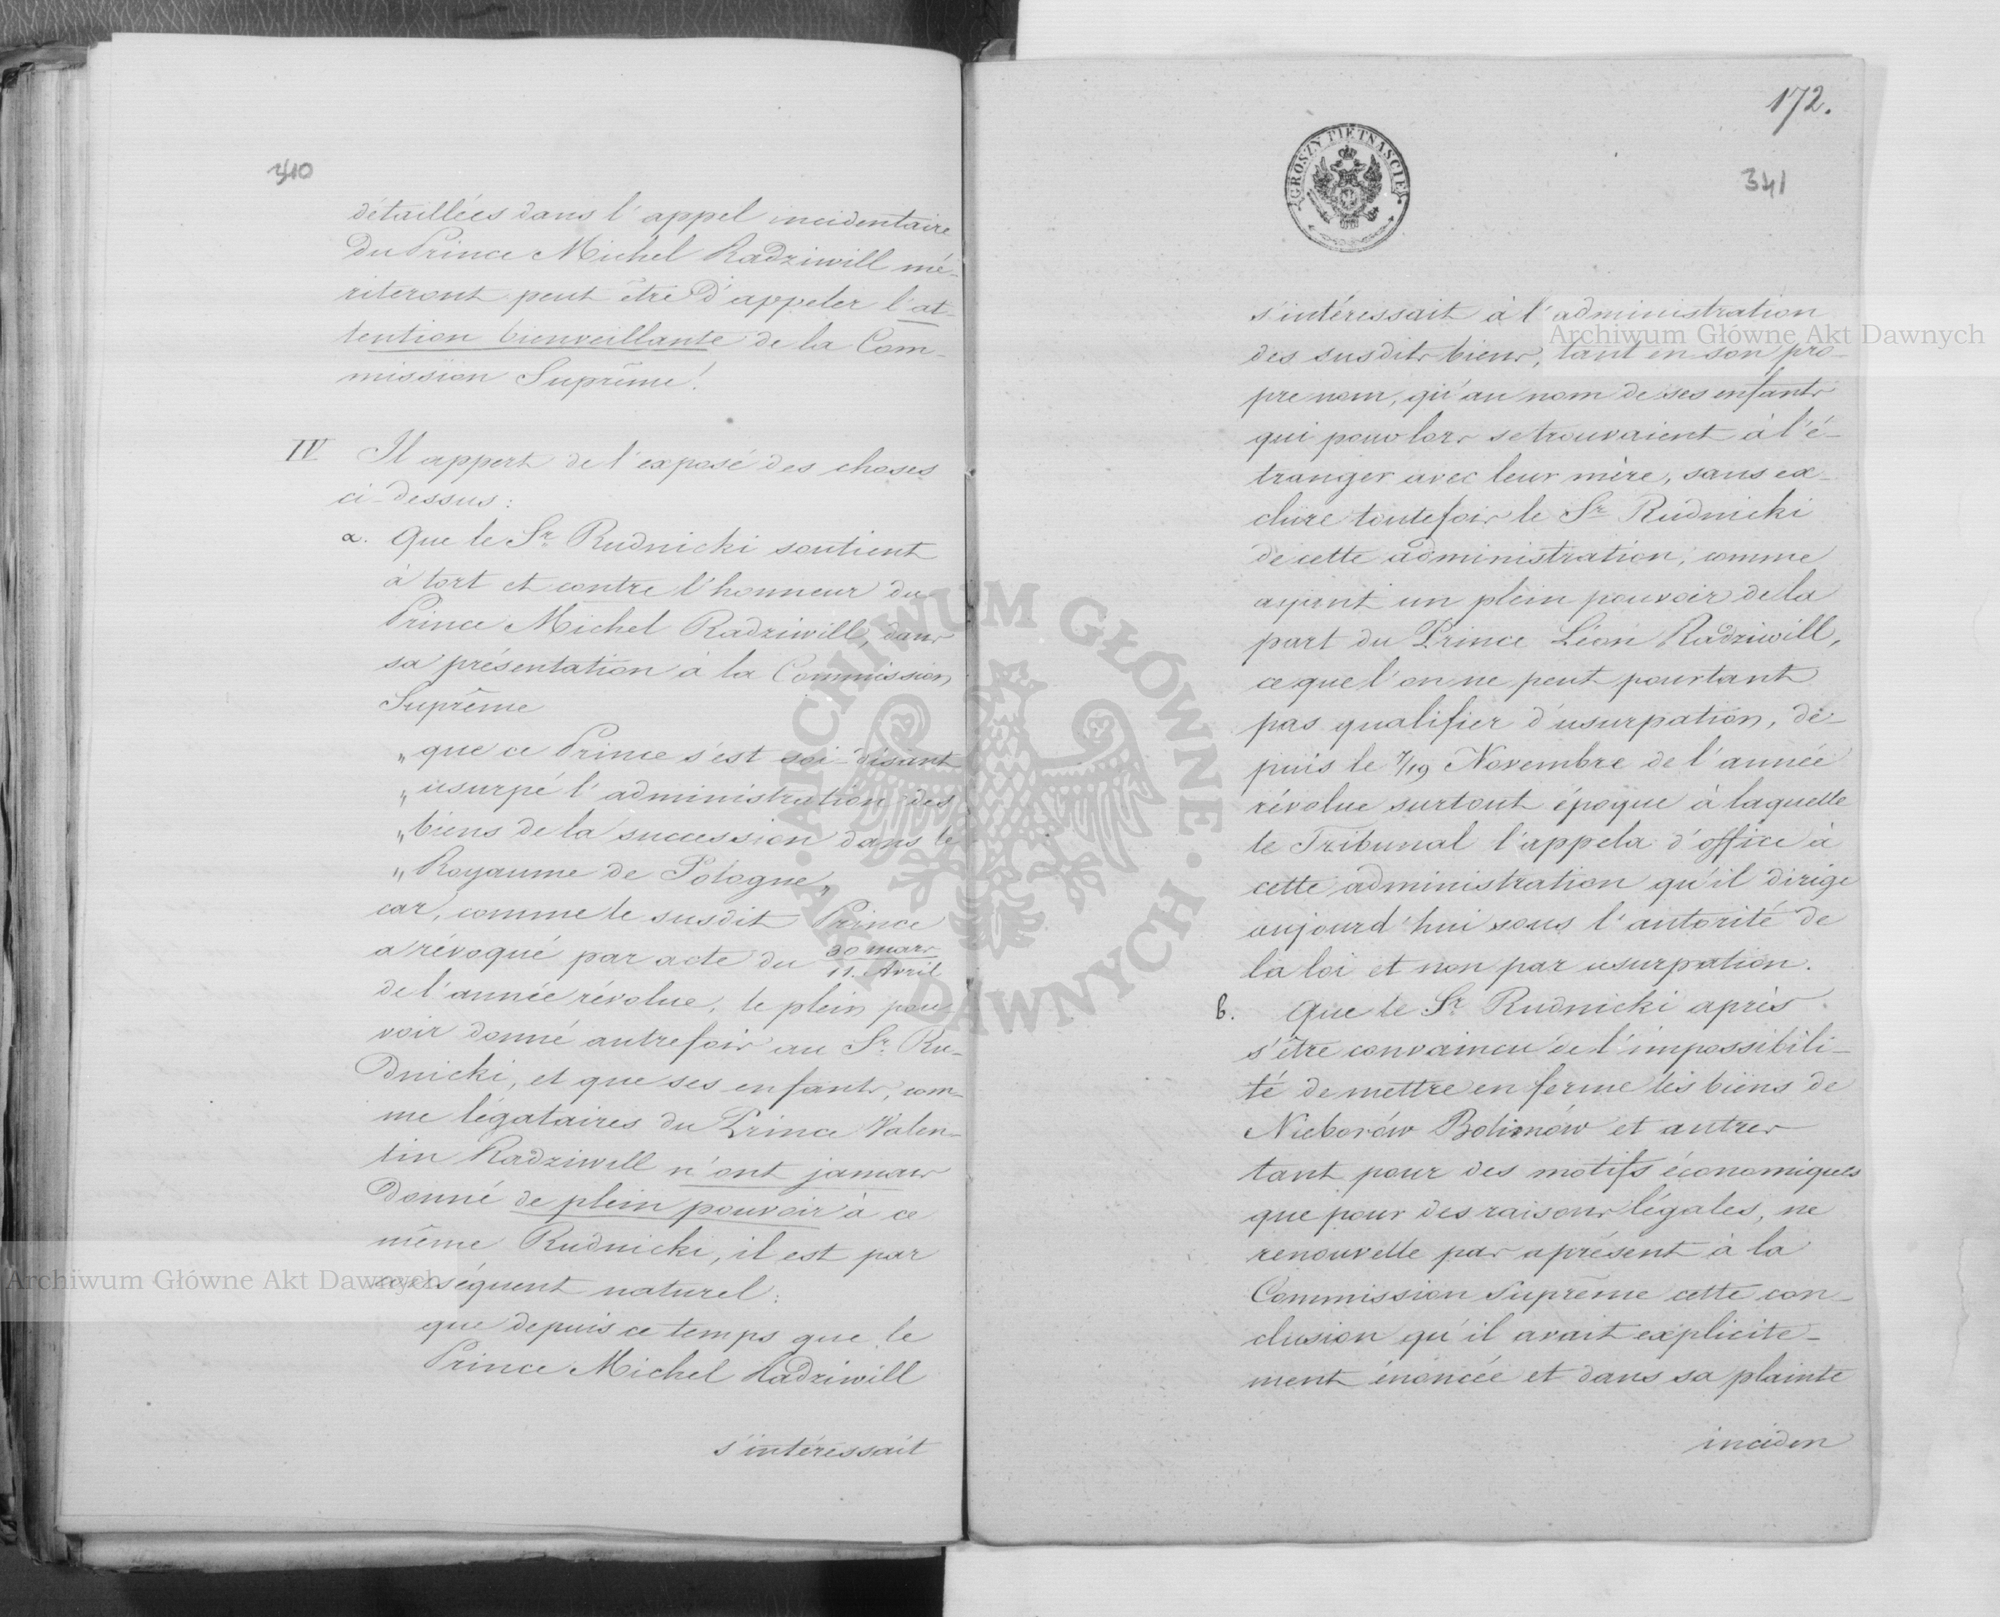 340
détaillées dans l'appel incidentaire
du Prince Michel Radziwill mé-
riteront peut être d'appeler l'at-
tention bienveillante de la Com-
mission Suprême!
IV Il appert de l'exposé des choses
ci-dessus:
a. Que le Sr. Rudnicki soutient
à tort et contre l'honneur du
Prince Michel Radziwill, dans
sa présentation à la Commission
Suprême
„que ce Prince s'est soi-disant
„usurpé l'administration des
„biens de la succession dans le
„Royaume de Pologne„
car, comme le susdit Prince
a révoqué par acte du 30 mars / 11. Avril
de l'année révolue, le plein pou-
voir donné autrefois au Sr. Ru-
dnicki, et que ses enfants, com-
me légataires du Prince Valen-
tin Radziwill n'ont jamais
donné de plein pouvoir à ce
même Rudnicki, il est par
conséquent naturel:
que depuis ce temps que le
Prince Michel Radziwill
s'intéressait
172.
341
GROSZY PIĘTNAŚCIE
s'intéressait à l'administration
des susdits biens, tant en son pro-
pre nom, qu'au nom de ses enfants
qui pour lors se trouvaient à l'é-
tranger avec leur mère, sans ex-
clure toutefois le Sr. Rudnicki
de cette administration, comme
ayant un plein pouvoir de la
part du Prince Léon Radziwill,
ce que l'on ne peut pourtant
pas qualifier d'usurpation, de-
puis le 7/19 Novembre de l'année
révolue surtout époque à laquelle
le Tribunal l'appela d'office à
cette administration qu'il dirige
aujourd'hui sous l'autorité de
la loi et non par usurpation.
b. Que le Sr. Rudnicki après
s'être convaincu de l'impossibili-
té de mettre en ferme les biens de
Nieborów Bolimów et autres
tant pour des motifs économiques
que pour des raisons légales, ne
renouvelle pas aprésent à la
Commission Suprême cette con-
clusion qu'il avait explicite-
ment énoncée et dans sa plainte
inciden
Archiwum Główne Akt Dawnych
Archiwum Główne Akt Dawnych
ARCHIWUM GŁÓWNE AKT DAWNYCH